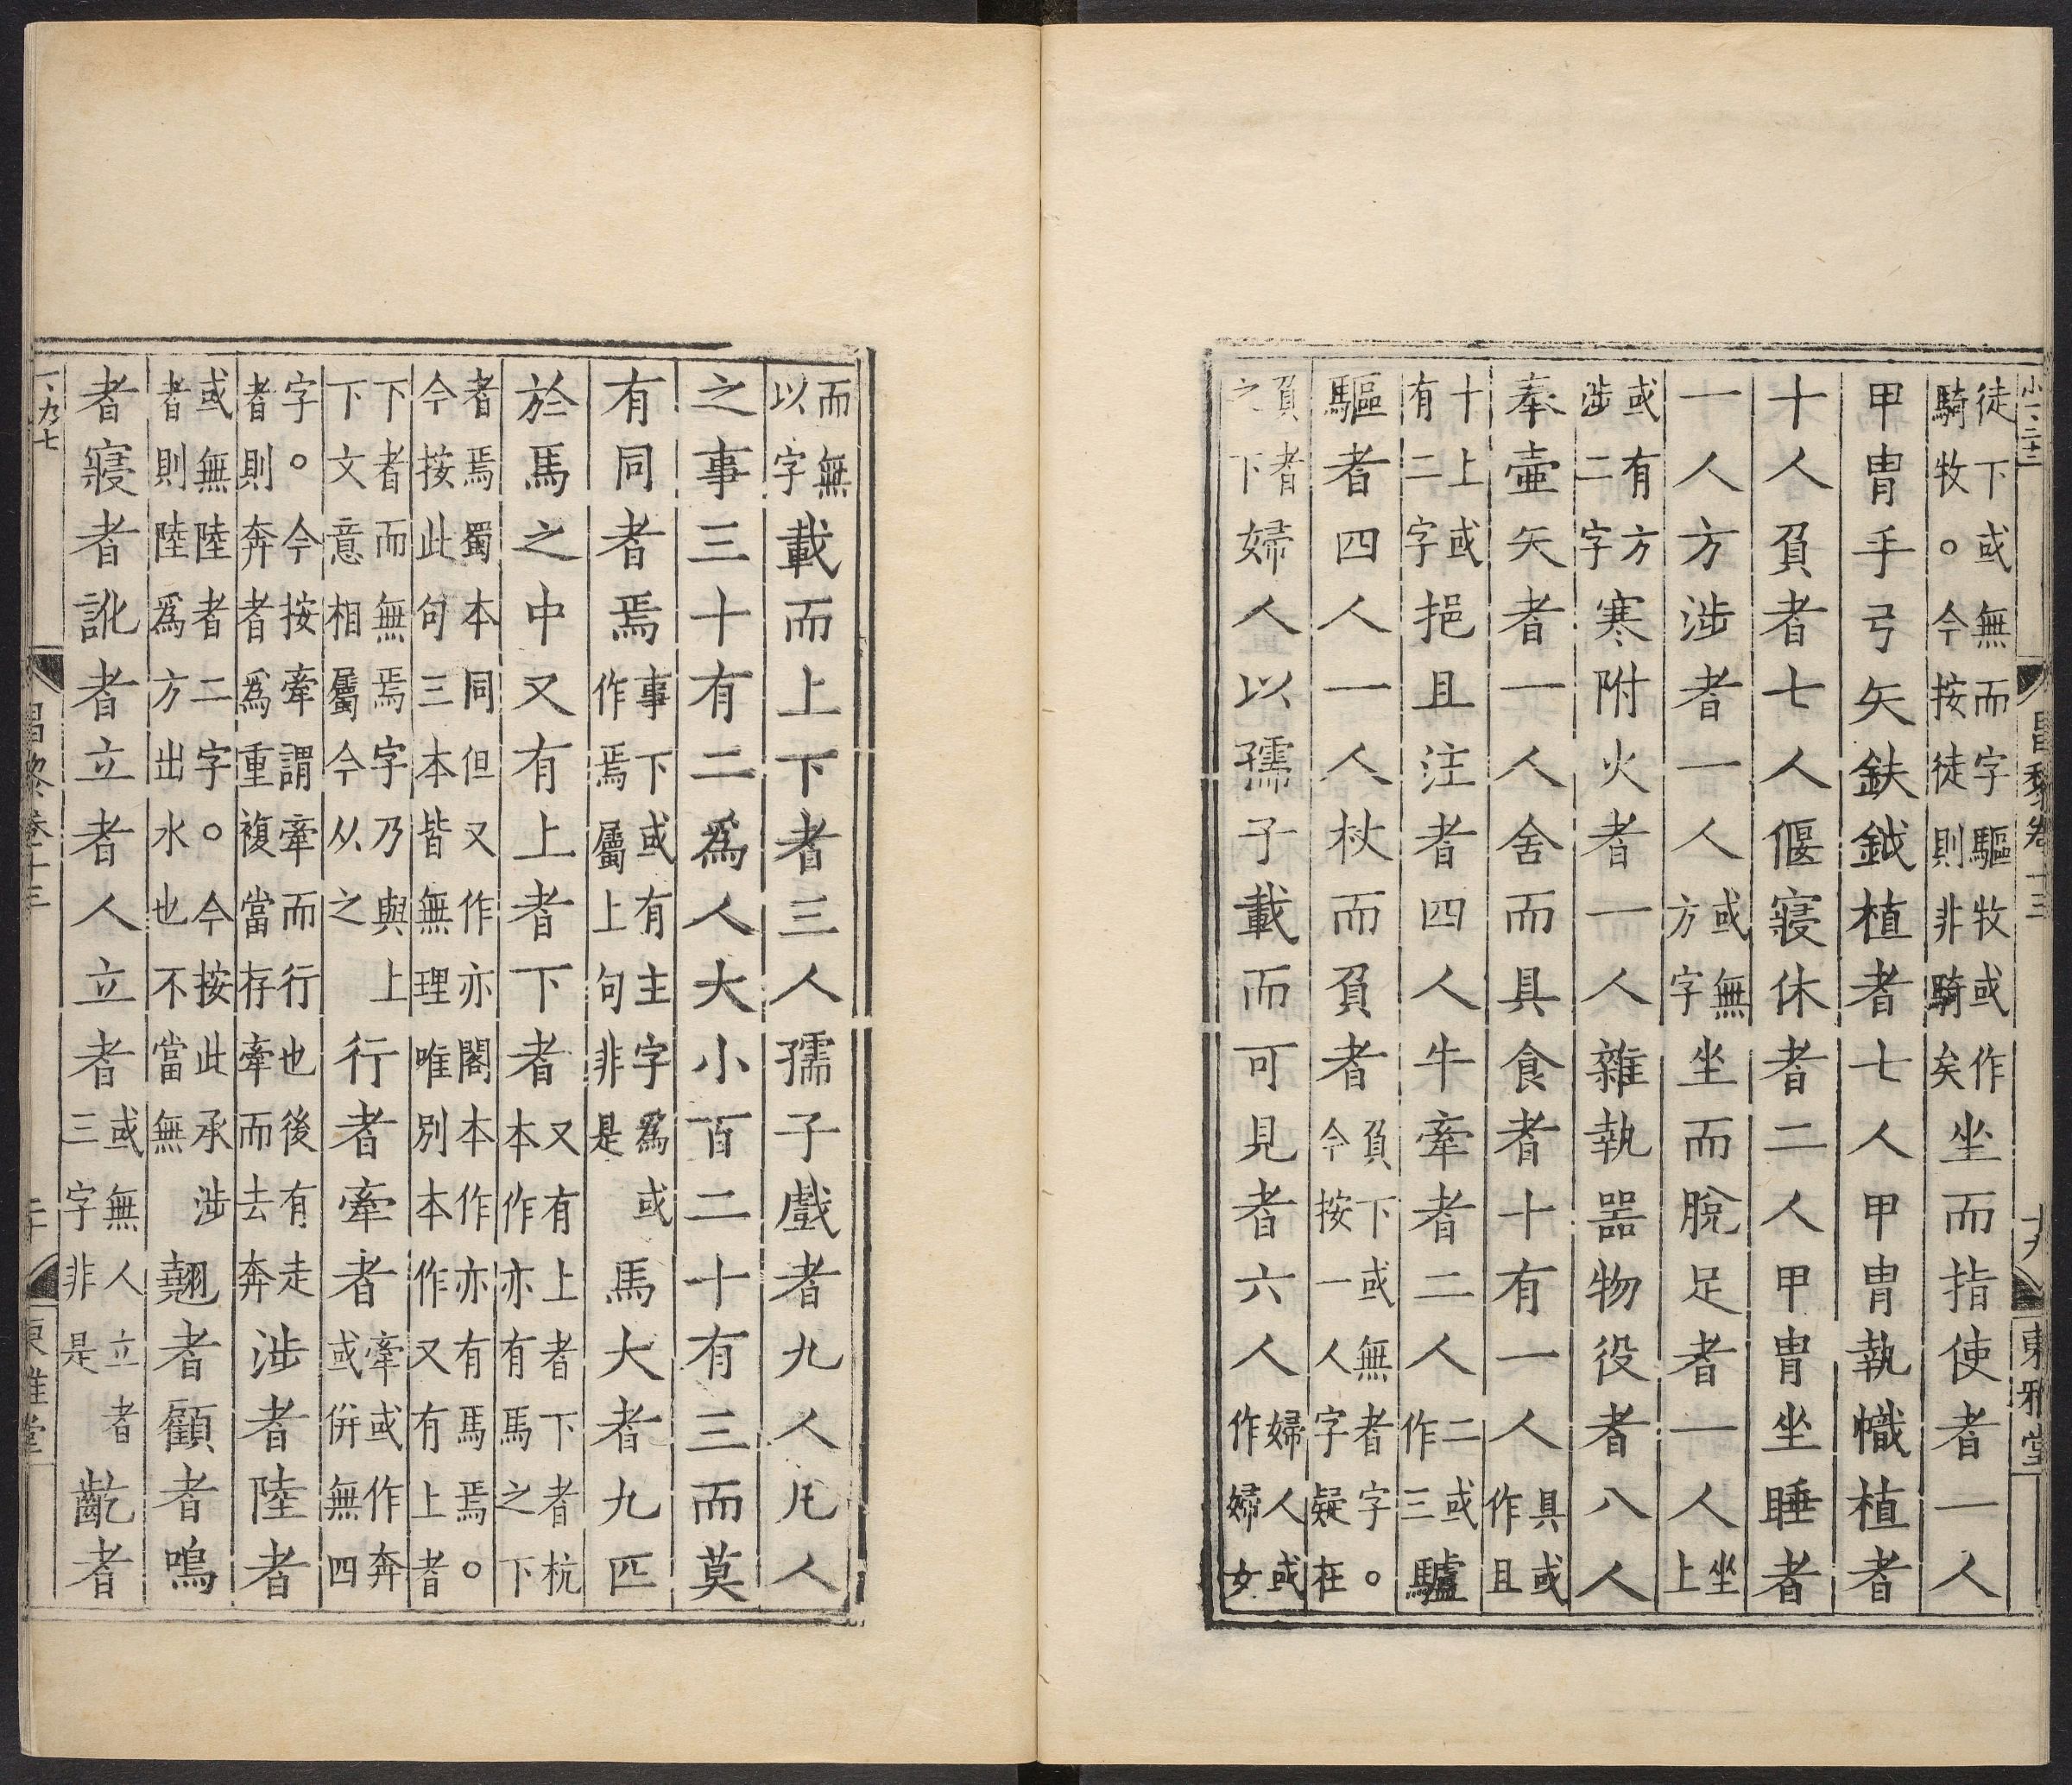 昌黎卷十三 十九 東雅堂
徒下或無而字驅牧或作騎牧。今按徒則非騎矣坐而指使者一人
甲冑手弓矢鈇鉞植者七人甲冑執幟植者
十人負者七人偃寢休者二人甲冑坐睡者
一人方涉者一人或無方字坐而脫足者一人坐上
或有方涉二字寒附火者一人雜執器物役者八人
奉壷矢者一人舍而具食者十有一人具或作且
十上或有二字挹且注者四人牛牽者二人二或作三驢
驅者四人一人杖而負者負下或無者字。今按一人字疑在
負者之下婦人以孺子載而可見者六人婦人或作婦女
而無以字載而上下者三人孺子戲者九人凡人
之事三十有二爲人大小百二十有三而莫
有同者焉事下或有主字爲或作焉屬上句非是馬大者九匹
於馬之中又有上者下者又有上者下者杭本作亦有馬之下
者焉蜀本同但又作亦閣本作亦有馬焉。今按此句三本皆無理唯別本作又有上者
下者而無焉字乃與上下文意相屬今从之行者牽者牽或作奔或併無四
字。今按牽謂牽而行也後有走者則奔者爲重複當存牽而去奔涉者陸者
或無陸者二字。今按此承涉者則陸爲方出水也不當無翹者顧者鳴
者寢者訛者立者人立者或無人立者三字非是齕者
昌黎卷十三 二十 東雅堂